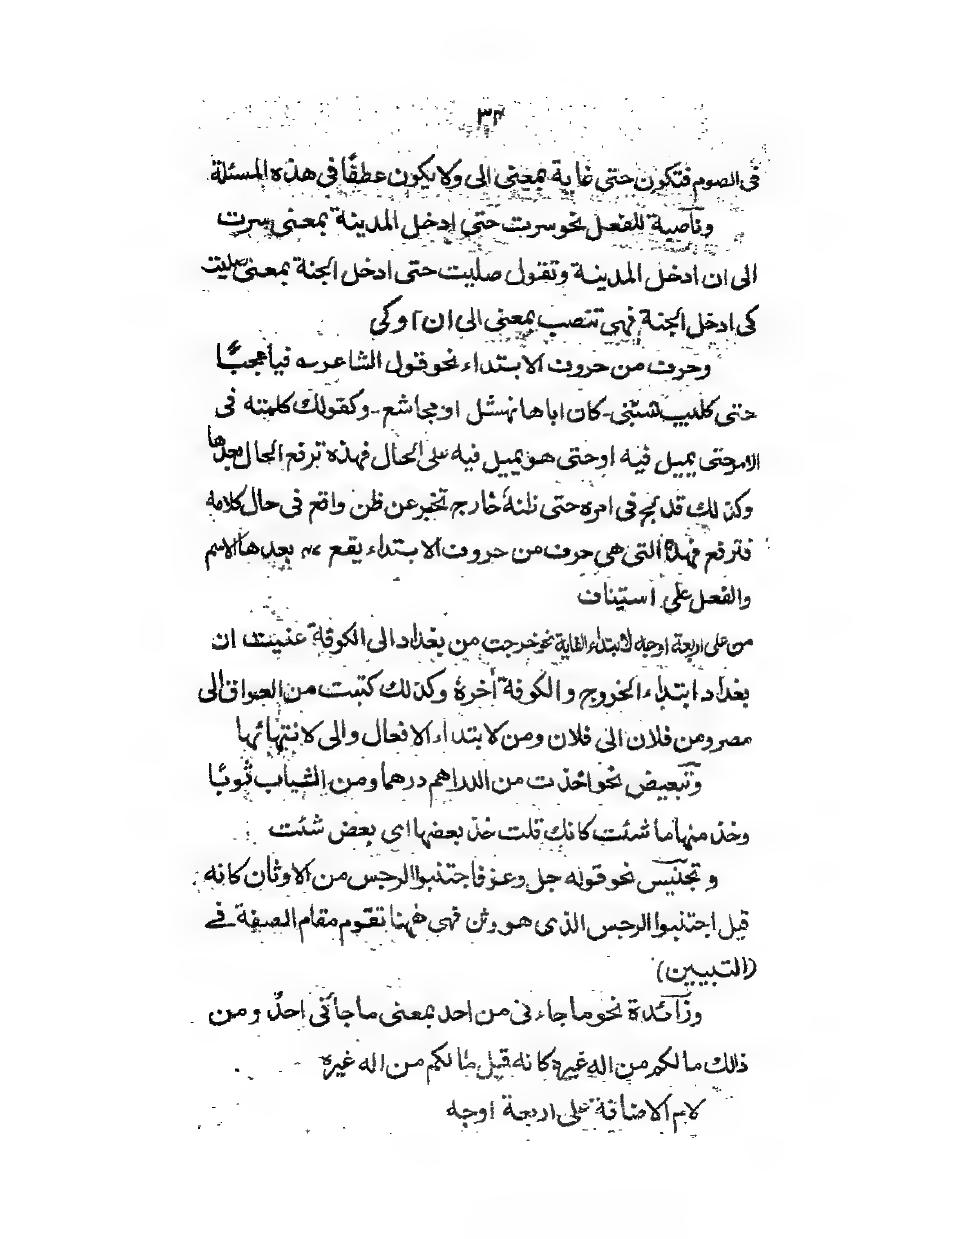 ٣٤
فى الصوم فتكون حتى غاية بمعنى الى ولا يكون عطفًا فى هذه المسئلة
وناصبة للفعل نحو سرت حتى ادخل المدينة بمعنى سرت
الى ان ادخل المدينة وتقول صليت حتى ادخل الجنة بمعنى صليت
كى ادخل الجنة فهى تنصب بمعنى الى ان او كى
وحرف من حروف الابتداء نحو قول الشاعر فيا عجبًا
حتى كليب تسبنى - كان اباها نهشل او مجاشع - وكقولك كلمته فى
الامر حتى يميل فيه او حتى هو يميل فيه على الحال فهذه ترفع الحال بعدها
وكذلك قد لج فى امره حتى ظنه خارج تخبر عن ظن واقع فى حال كلامه
فترفع فهذه التى هى حرف من حروف الابتداء يقع بعدها الاسم
والفعل على استيناف
من على اربعة اوجه لابتداء الغاية نحو خرجت من بغداد الى الكوفة عنيت ان
بغداد ابتداء الخروج والكوفة آخره وكذلك كتبت من العراق الى
مصر ومن فلان الى فلان ومن لابتداء الافعال والى لانتهائها
وتبعيض نحو اخذت من الدراهم درهما ومن الثياب ثوبًا
وخذ منها ما شئت كانك قلت خذ بعضها اى بعض شئت
وتجنيس نحو قوله جل وعز فاجتنبوا الرجس من الاوثان كانه
قيل اجتنبوا الرجس الذى هو وثن فهى ههنا تقوم مقام الصفة فى
(التبيين)
وزائدة نحو ما جاءنى من احد بمعنى ما جائنى احدٌ ومن
ذلك ما لكم من اله غيره كانه قيل ما لكم من اله غيره
لام الاضافة على اربعة اوجه